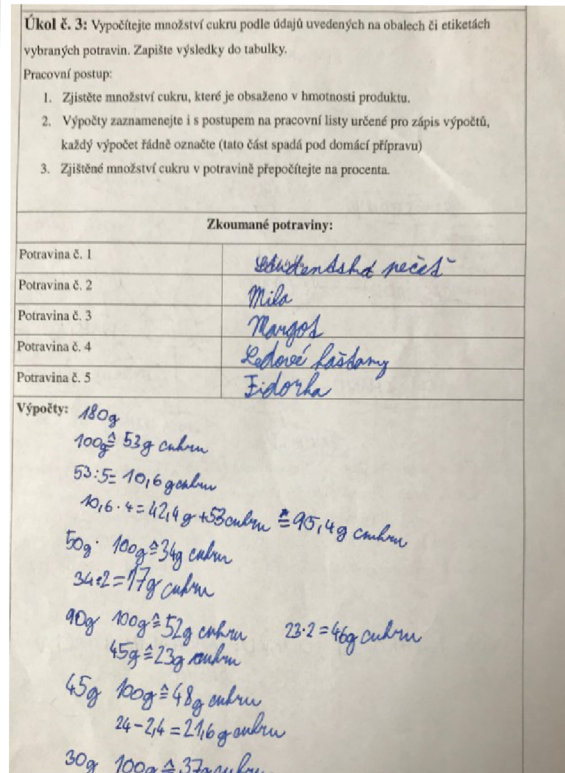 Úkol č. 3: Vypočítejte množství cukru podle údajů uvedených na obalech či etiketách
vybraných potravin. Zapište výsledky do tabulky.
Pracovní postup:
1. Zjistěte množství cukru, které je obsaženo v hmotnosti produktu.
2. Výpočty zaznamenejte i s postupem na pracovní listy určené pro zápis výpočtů,
každý výpočet řádně označte (tato část spadá pod domácí přípravu)
3. Zjištěné množství cukru v potravině přepočítejte na procenta.
Zkoumané potraviny:
Potravina č. 1 Studentská pečeť
Potravina č. 2 Mila
Potravina č. 3 Margot
Potravina č. 4 Ledové kaštany
Potravina č. 5 Fidorka
Výpočty: 180g
100g ≙ 53g cukru
53:5= 10,6g cukru
10,6 · 4 = 42,4g + 53 cukru ≙ 95,4g cukru
50g · 100g ≙ 34g cukru
34:2 = 17g cukru
90g 100g ≙ 52g cukru 23·2 = 46g cukru
45g ≙ 23g cukru
45g 100g ≙ 48g cukru
24 - 2,4 = 21,6g cukru
30g 100g ≙ 37g cukru